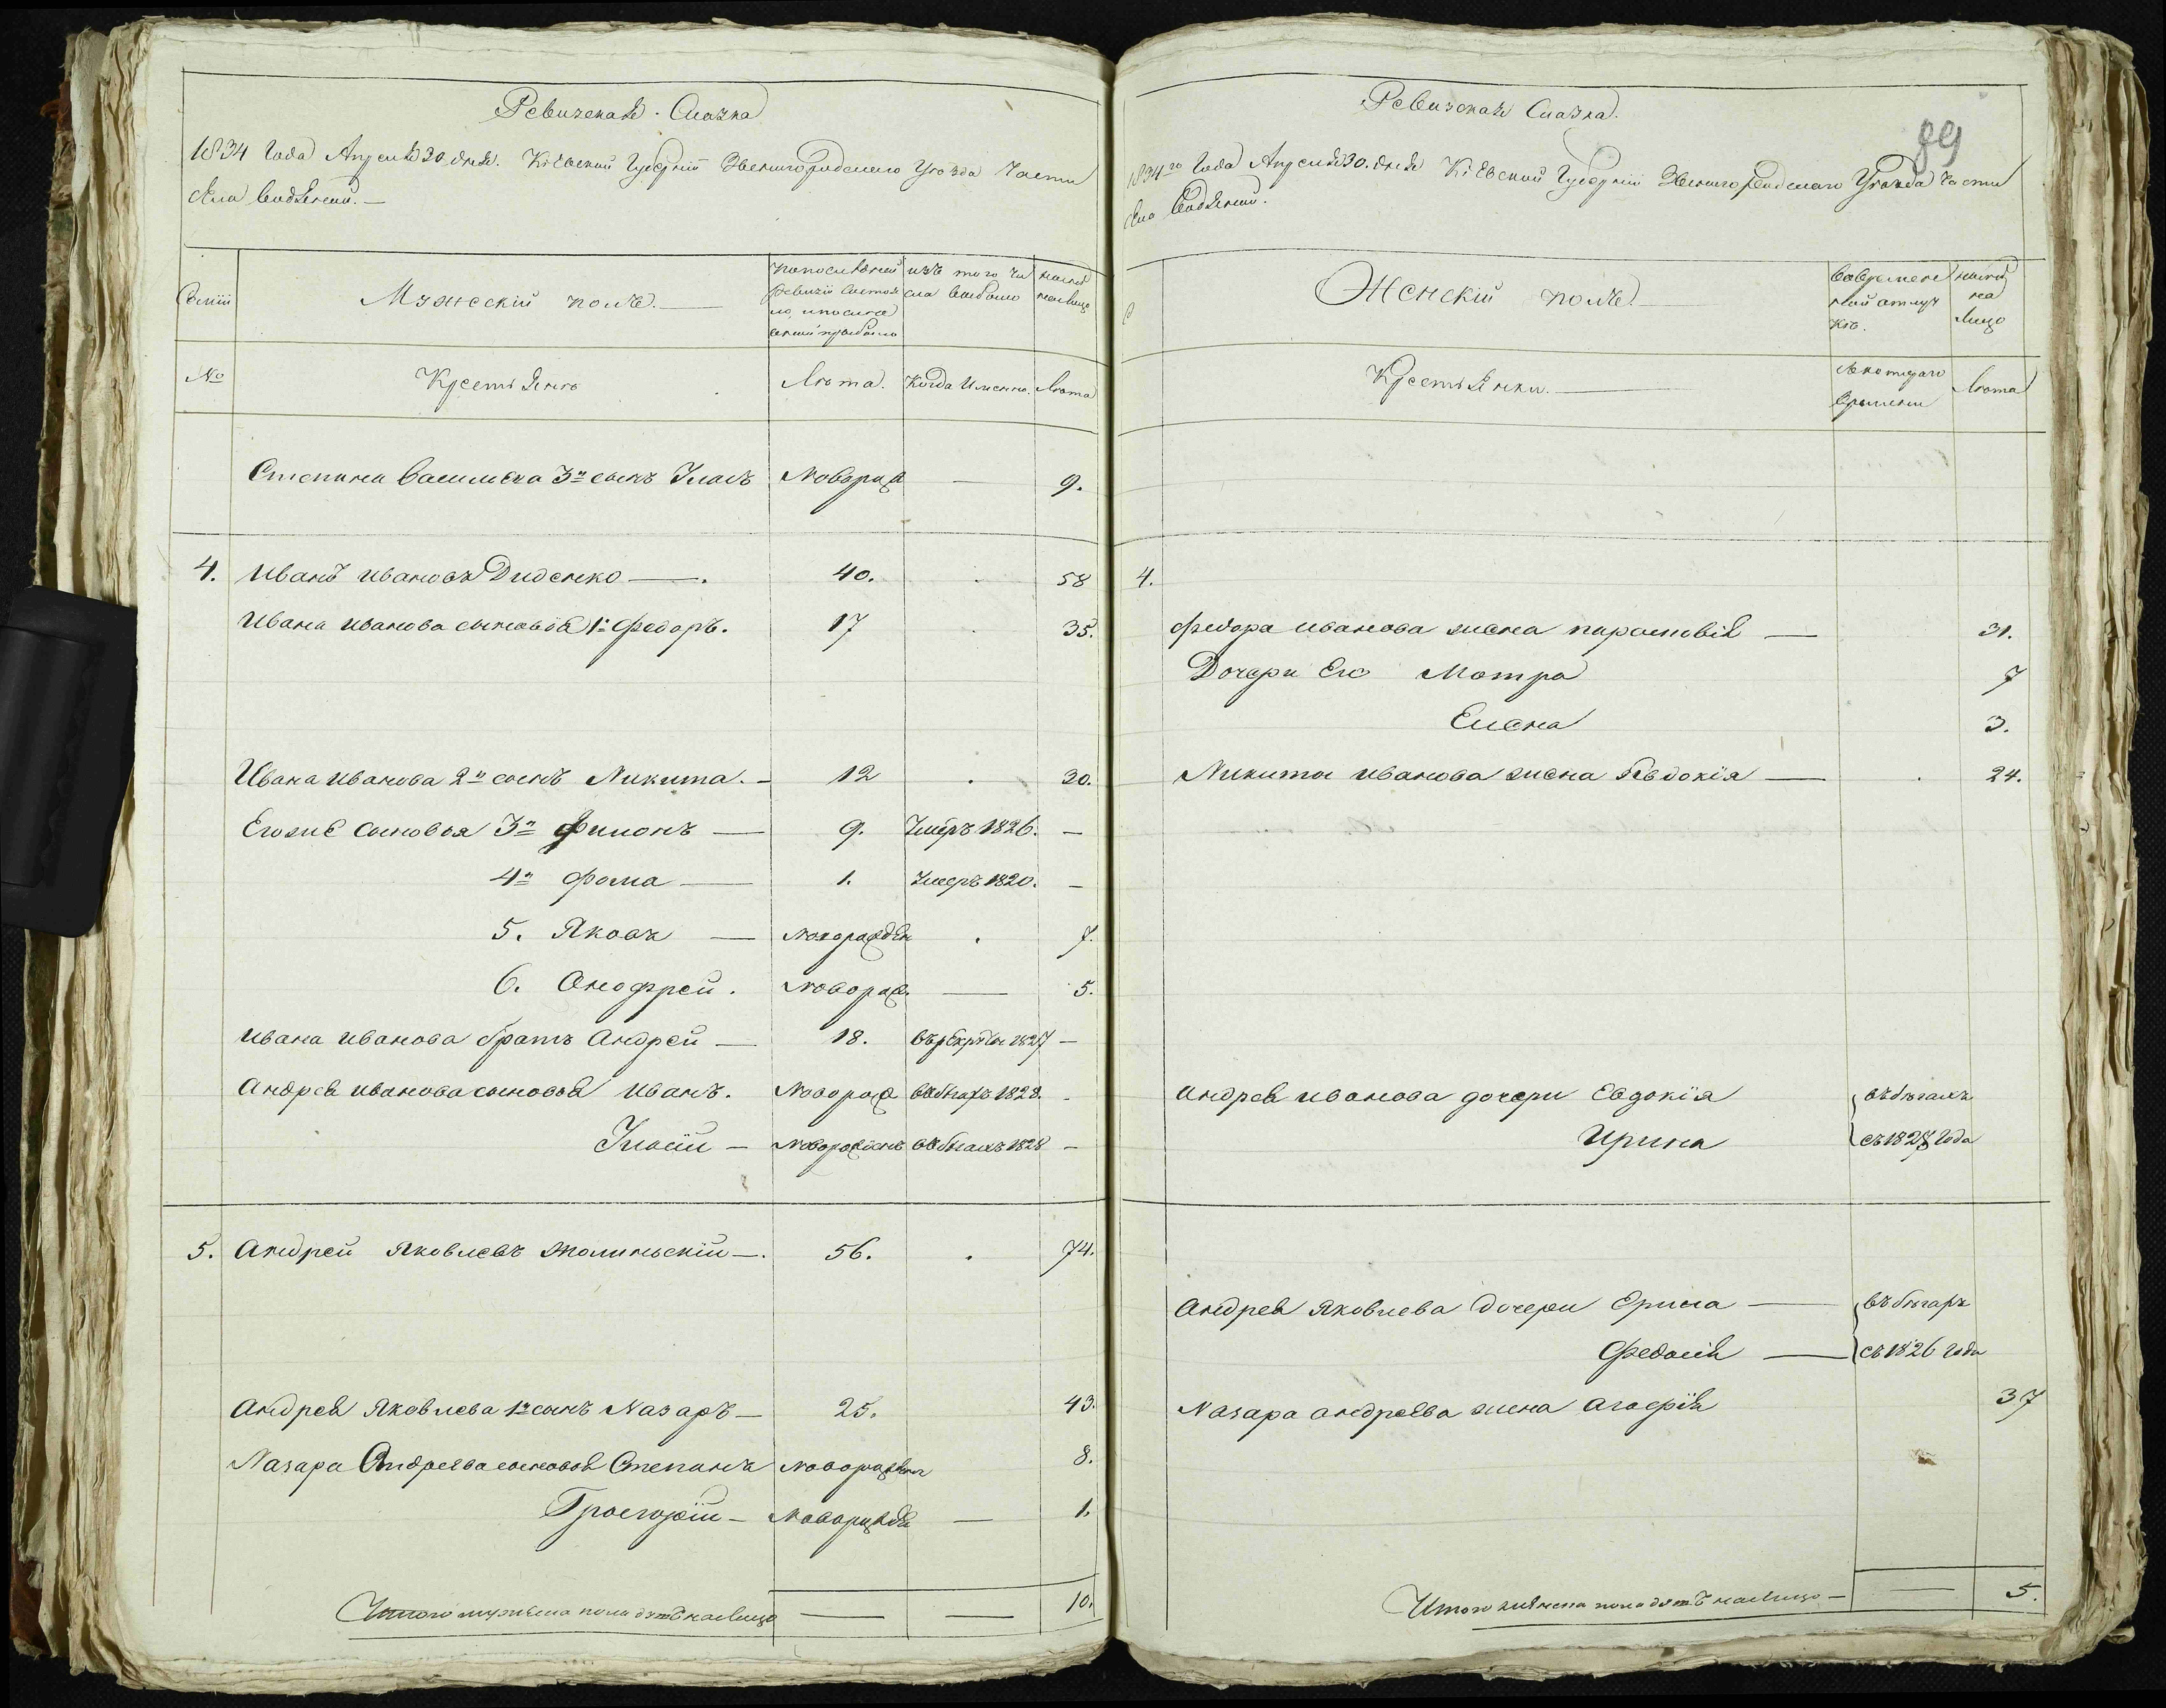 Ревизская Сказка
1834 Года Апреля 30 дня. Кіевской Губерніи Звенигородского Уезда Части
села Водяной.
Семіи
Мужескій полъ.
Попоследней ревизіи состояло, ипослеей прибыло
изъ того числа выбыло
ныне налице
№
Крестьяне
Лета.
Когда Именно.
Лета
Степана Васильева 3й сынъ Уласъ Новорож — 9.
4. Иванъ Ивановъ Диденко — 40. 58
Ивана Иванова сыновья 1й Федоръ. 17 35.
Ивана Иванова 2й сынъ Никита. — 12 . 30.
Егоже сыновья 3й Филонъ — 9. Умеръ 1826. —
4й Фома — 1. Умеръ 1820. —
5. Яковъ — Новорожден . 7.
6. Онофрей. Новорож. — 5.
Ивана Иванова братъ Андрей — 18. Врекруты 1827 —
Андрея Иванова сыновья Иванъ. Новорож Вбегахъ 1828. -
Уласій — Новорожденъ Вбегахъ 1828 —
5. Андрей Яковлевъ Жолинскій —. 56. . 74.
Андрея Яковлева 1й сынъ Назаръ — 25. 43.
Назара Андреева сыновья Степанъ Новорожденъ 8.
Григорій — Новорожде — 1.
Итого мужеска пола душъ налицо — — 10.
Ревизская Сказка.
89
1834го Года Апреля 30. дня Кіевской Губерніи Звенигородского Уезда Части
села Водяной.
Женскій полъ.
Вовременной отлучке.
ныне на лицо
Крестьянки. —
Скотораго времени
Лета
4.
Федора Иванова жена Парасковія — 31.
Дочери Его Мотра 7
Елена 3.
Никиты Иванова жена Евдокія — . 24.
Андрея Иванова дочери Евдокія въбегахъ
Ирина съ 1828 Года
Андрея Яковлева дочери Ерина — въбегахъ
Федосія — съ 1826 года
Назара Андреева жена Агафія 37
Итого женска пола душъ налицо — — 5.